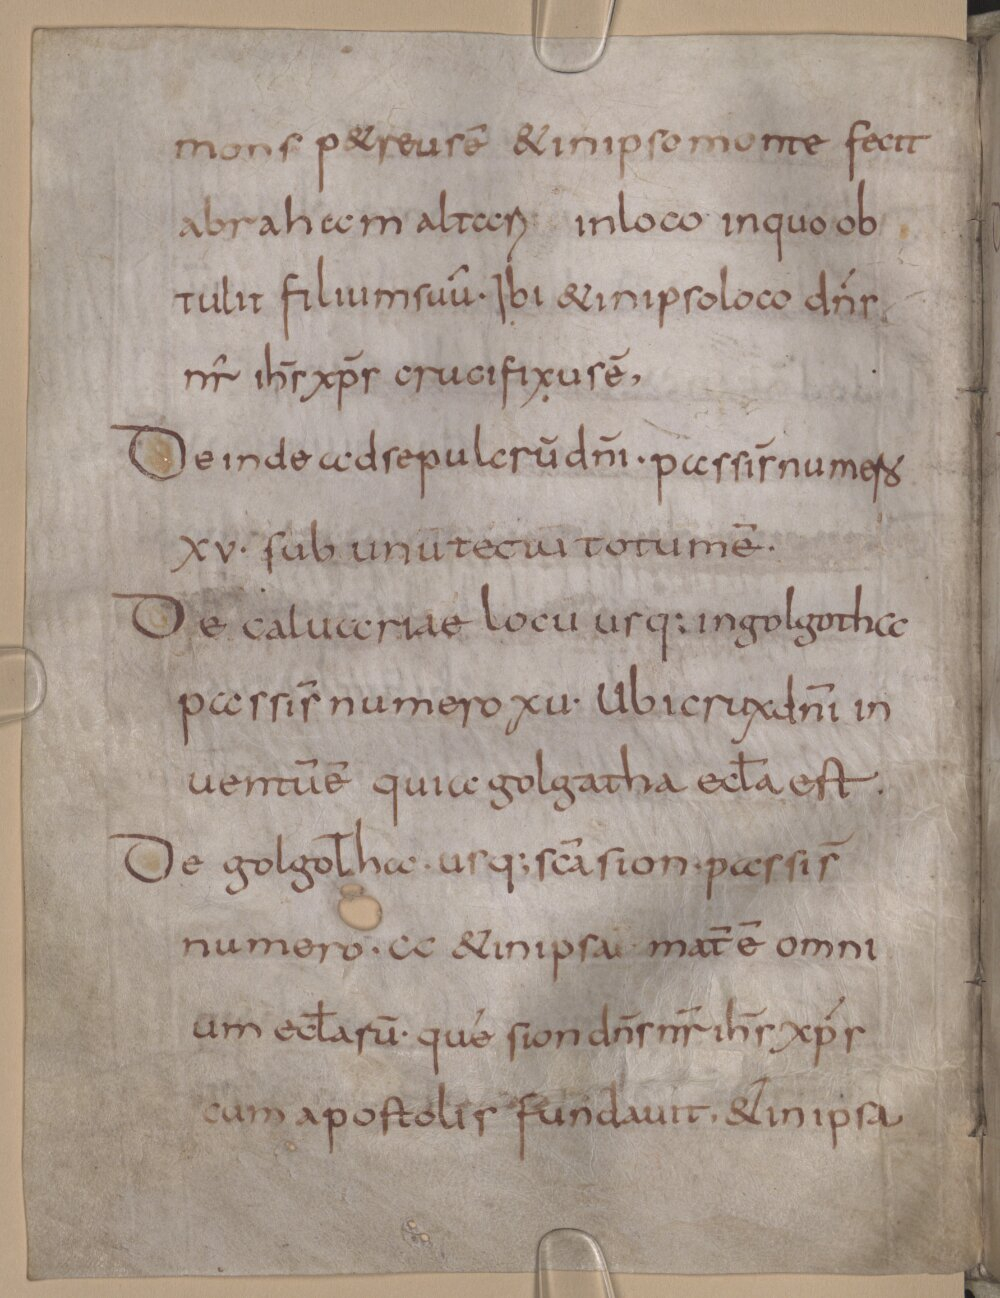 mons p&reusē &inipso monte fecit
abraham altaꝝ in loco inquo ob
tulit filium suū. Ibi &inipso loco dn̄s
nr̄ ih̄s xp̄s crucifixus ē,
Deinde ad sepulcrū dn̄i. passis̄ numero
xv. sub unu tectu totum ē.
De caluariae locu usq; ingolgotha
passis̄ numero xv. Ubi crux dn̄i in
uentū ē quia golgatha ecl̄a est.
De golgotha. usq; scā sion. passis̄
numero. cc &inipsa mat̄ ē omni
um ecl̄asū. que sion dn̄s nr̄ ih̄s xp̄s
cum apostolis fundauit. &inipsa